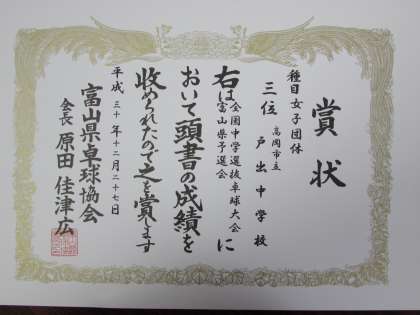 賞状
種目女子団体
三位 高岡市立 戸出中学校
右は全国中学選抜卓球大会富山県予選会に
おいて頭書の成績を
收めくれたので之を賞します
平成三十年十二月二十七日
富山県卓球協会
会長 原田佳津広